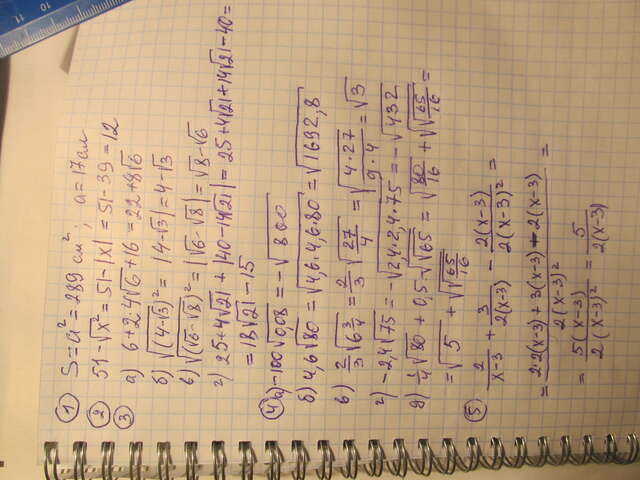 ① S=a²=289 см², a=17см
② 51-√x² = 51-|x| = 51-39 = 12
③ а) 6+2·4√6+16 = 22+8√6
б) √(4-√3)² = |4-√3| = 4-√3
в) √(√6-√8)² = |√6-√8| = √8-√6
г) 25-4√21 + |40-14√21| = 25+4√21+14√21-40=
=18√21-15
④ а) -100√0,08 = -√800
б) 4,6√80 = √4,6·4,6·80 = √1692,8
в) 2/3√6 3/4 = 2/3√27/4 = √4·27/9·4 = √3
г) -2,4√75 = -√2,4·2,4·75 = -√432
д) 1/4√80 + 0,5·√√65 = √80/16 + √√65/16 =
=√5 + √√65/16
⑤ 2/x-3 + 3/2(x-3) - 2(x-3)/2(x-3)² =
= 2·2(x-3)+3(x-3)-2(x-3)/2(x-3)² =
= 5(x-3)/2(x-3)² = 5/2(x-3)
10
11